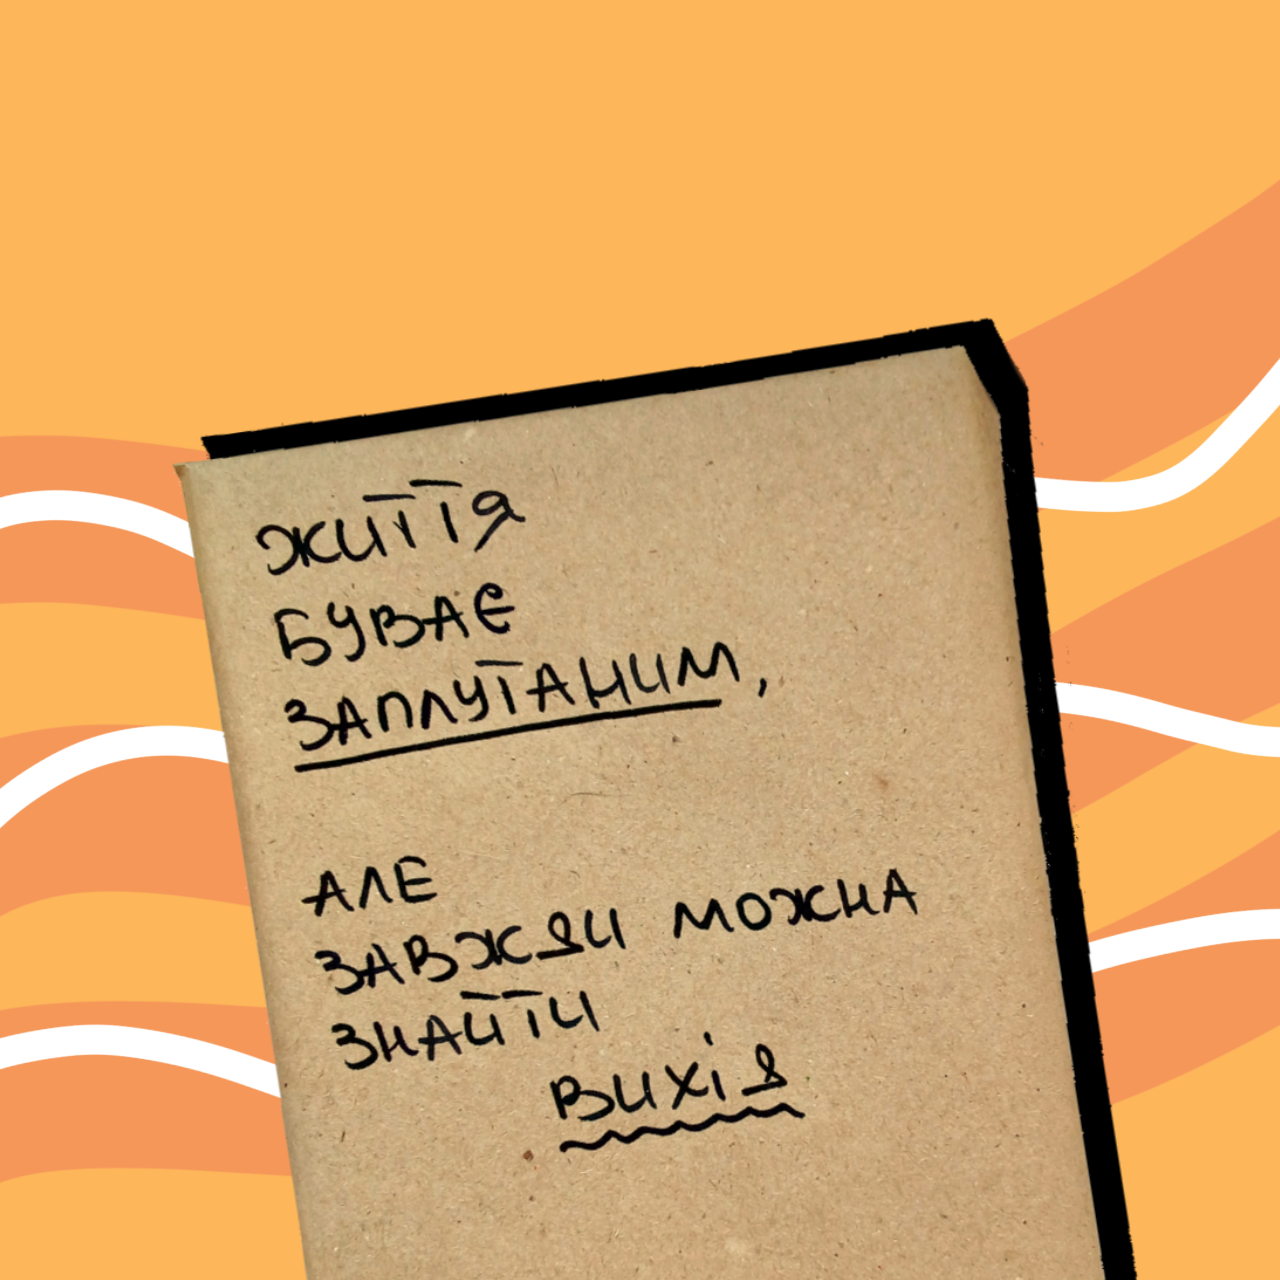 ЖИТТЯ
БУВАЄ
ЗАПЛУТАНИМ,
АЛЕ
ЗАВЖДИ МОЖНА
ЗНАЙТИ
ВИХІД